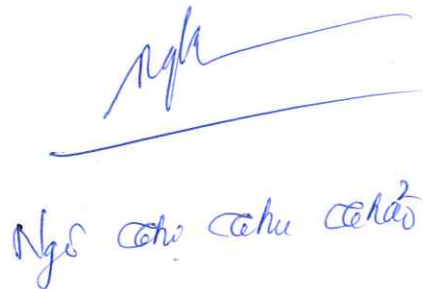 Ngô Thị Thu Thảo